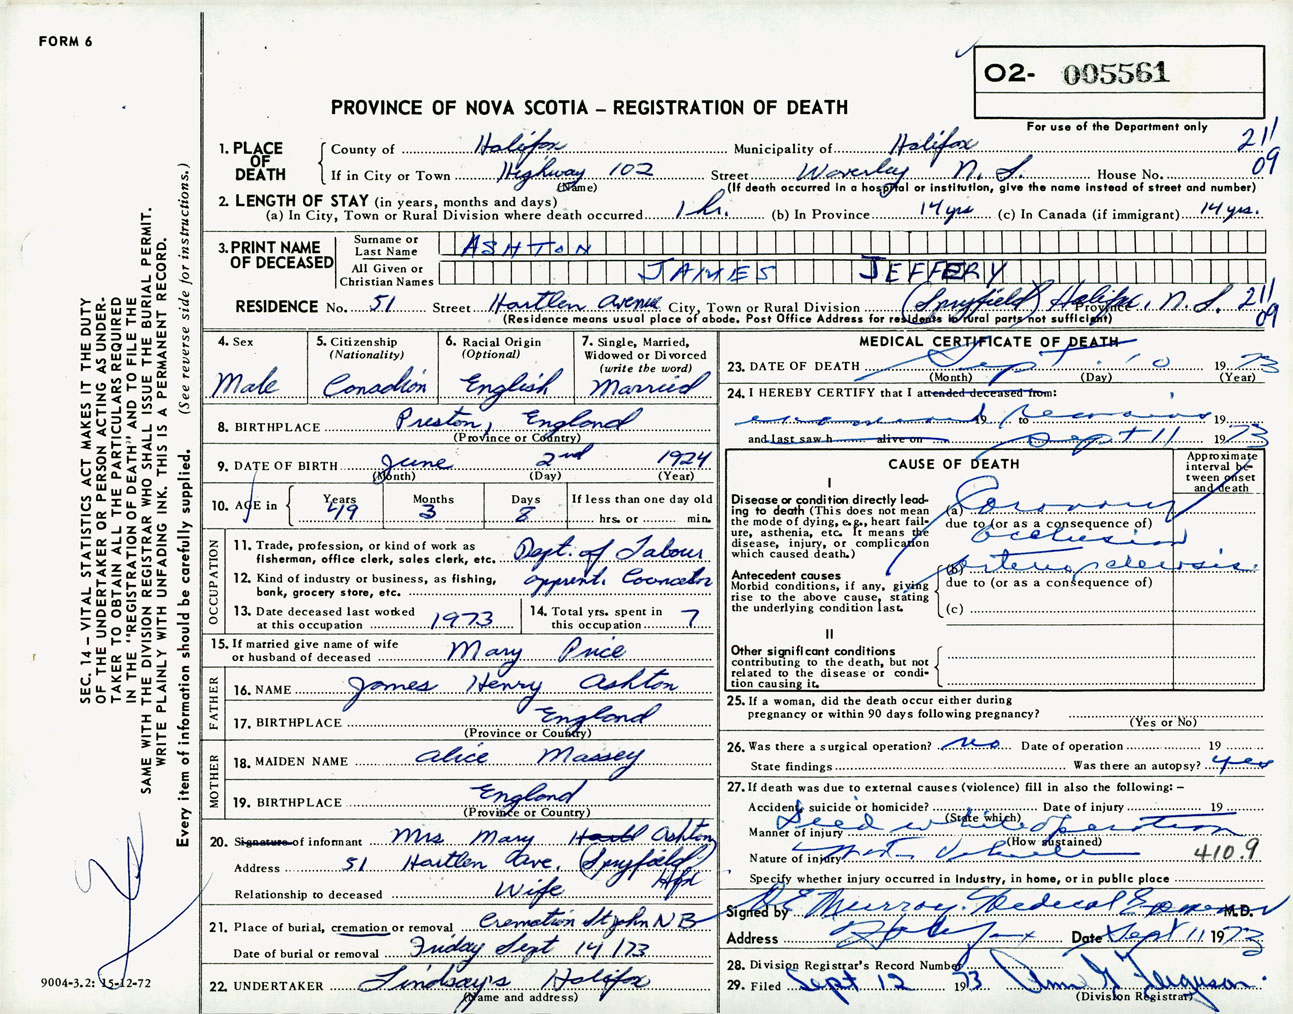 FORM 6
O2- 005561
PROVINCE OF NOVA SCOTIA – REGISTRATION OF DEATH
For use of the Department only
211
09
1. PLACE OF DEATH
County of Halifax Municipality of Halifax
If in City or Town Highway 102 Street Waverley N. S. House No.
(Name) (If death occurred in a hospital or institution, give the name instead of street and number)
2. LENGTH OF STAY (in years, months and days)
(a) In City, Town or Rural Division where death occurred 1 hr. (b) In Province 14 yrs (c) In Canada (if immigrant) 14 yrs.
3. PRINT NAME OF DECEASED
Surname or Last Name ASHTON
All Given or Christian Names JAMES JEFFERY
RESIDENCE No. 51 Street Hartlen Avenue City, Town or Rural Division (Spryfield) Halifax, N. S. Province 211
09
(Residence means usual place of abode. Post Office Address for residents in rural parts not sufficient)
4. Sex
Male
5. Citizenship
(Nationality)
Canadian
6. Racial Origin
(Optional)
English
7. Single, Married,
Widowed or Divorced
(write the word)
Married
8. BIRTHPLACE Preston, England
(Province or Country)
9. DATE OF BIRTH June 2nd 1924
(Month) (Day) (Year)
10. AGE in
Years Months Days If less than one day old
49 3 8 hrs. or min.
OCCUPATION
11. Trade, profession, or kind of work as
fisherman, office clerk, sales clerk, etc. Dept. of Labour
12. Kind of industry or business, as fishing,
bank, grocery store, etc. apprent. Councelor
13. Date deceased last worked
at this occupation 1973
14. Total yrs. spent in
this occupation 7
15. If married give name of wife
or husband of deceased Mary Price
FATHER
16. NAME James Henry Ashton
17. BIRTHPLACE England
(Province or Country)
MOTHER
18. MAIDEN NAME Alice Massey
19. BIRTHPLACE England
(Province or Country)
20. Signature of informant Mrs Mary Ashton
Address 51 Hartlen Ave. (Spryfield) Hfx
Relationship to deceased Wife
21. Place of burial, cremation or removal Cremation St john N B
Date of burial or removal Friday Sept 14/73
22. UNDERTAKER Lindsays Halifax
(Name and address)
MEDICAL CERTIFICATE OF DEATH
23. DATE OF DEATH Sept 10 1973
(Month) (Day) (Year)
24. I HEREBY CERTIFY that I attended deceased from:
19 to 19
and last saw h alive on Sept 11 1973
CAUSE OF DEATH
Approximate
interval be-
tween onset
and death
I
Disease or condition directly lead-
ing to death (This does not mean
the mode of dying, e.g., heart fail-
ure, asthenia, etc. It means the
disease, injury, or complication
which caused death.)
(a) Coronary
due to (or as a consequence of)
Occlusion
Antecedent causes
Morbid conditions, if any, giving
rise to the above cause, stating
the underlying condition last.
(b) arteriosclerosis.
due to (or as a consequence of)
(c)
II
Other significant conditions
contributing to the death, but not
related to the disease or condi-
tion causing it.
25. If a woman, did the death occur either during
pregnancy or within 90 days following pregnancy?
(Yes or No)
26. Was there a surgical operation? no Date of operation 19
State findings Was there an autopsy? yes
27. If death was due to external causes (violence) fill in also the following: –
Accident, suicide or homicide? Date of injury 19
(State which)
Manner of injury Died while operation
(How sustained)
Nature of injury Motor Vehicle 410.9
Specify whether injury occurred in Industry, in home, or in public place
Signed by Murray. Medical Examiner M.D.
Address Halifax Date Sept 11 1973
28. Division Registrar's Record Number
29. Filed Sept 12 1973 Ferguson.
(Division Registrar)
SEC. 14 – VITAL STATISTICS ACT MAKES IT THE DUTY
OF THE UNDERTAKER OR PERSON ACTING AS UNDER-
TAKER TO OBTAIN ALL THE PARTICULARS REQUIRED
IN THE "REGISTRATION OF DEATH" AND TO FILE THE
SAME WITH THE DIVISION REGISTRAR WHO SHALL ISSUE THE BURIAL PERMIT.
WRITE PLAINLY WITH UNFADING INK. THIS IS A PERMANENT RECORD.
Every item of information should be carefully supplied. (See reverse side for instructions.)
9004-3.2: 15-12-72